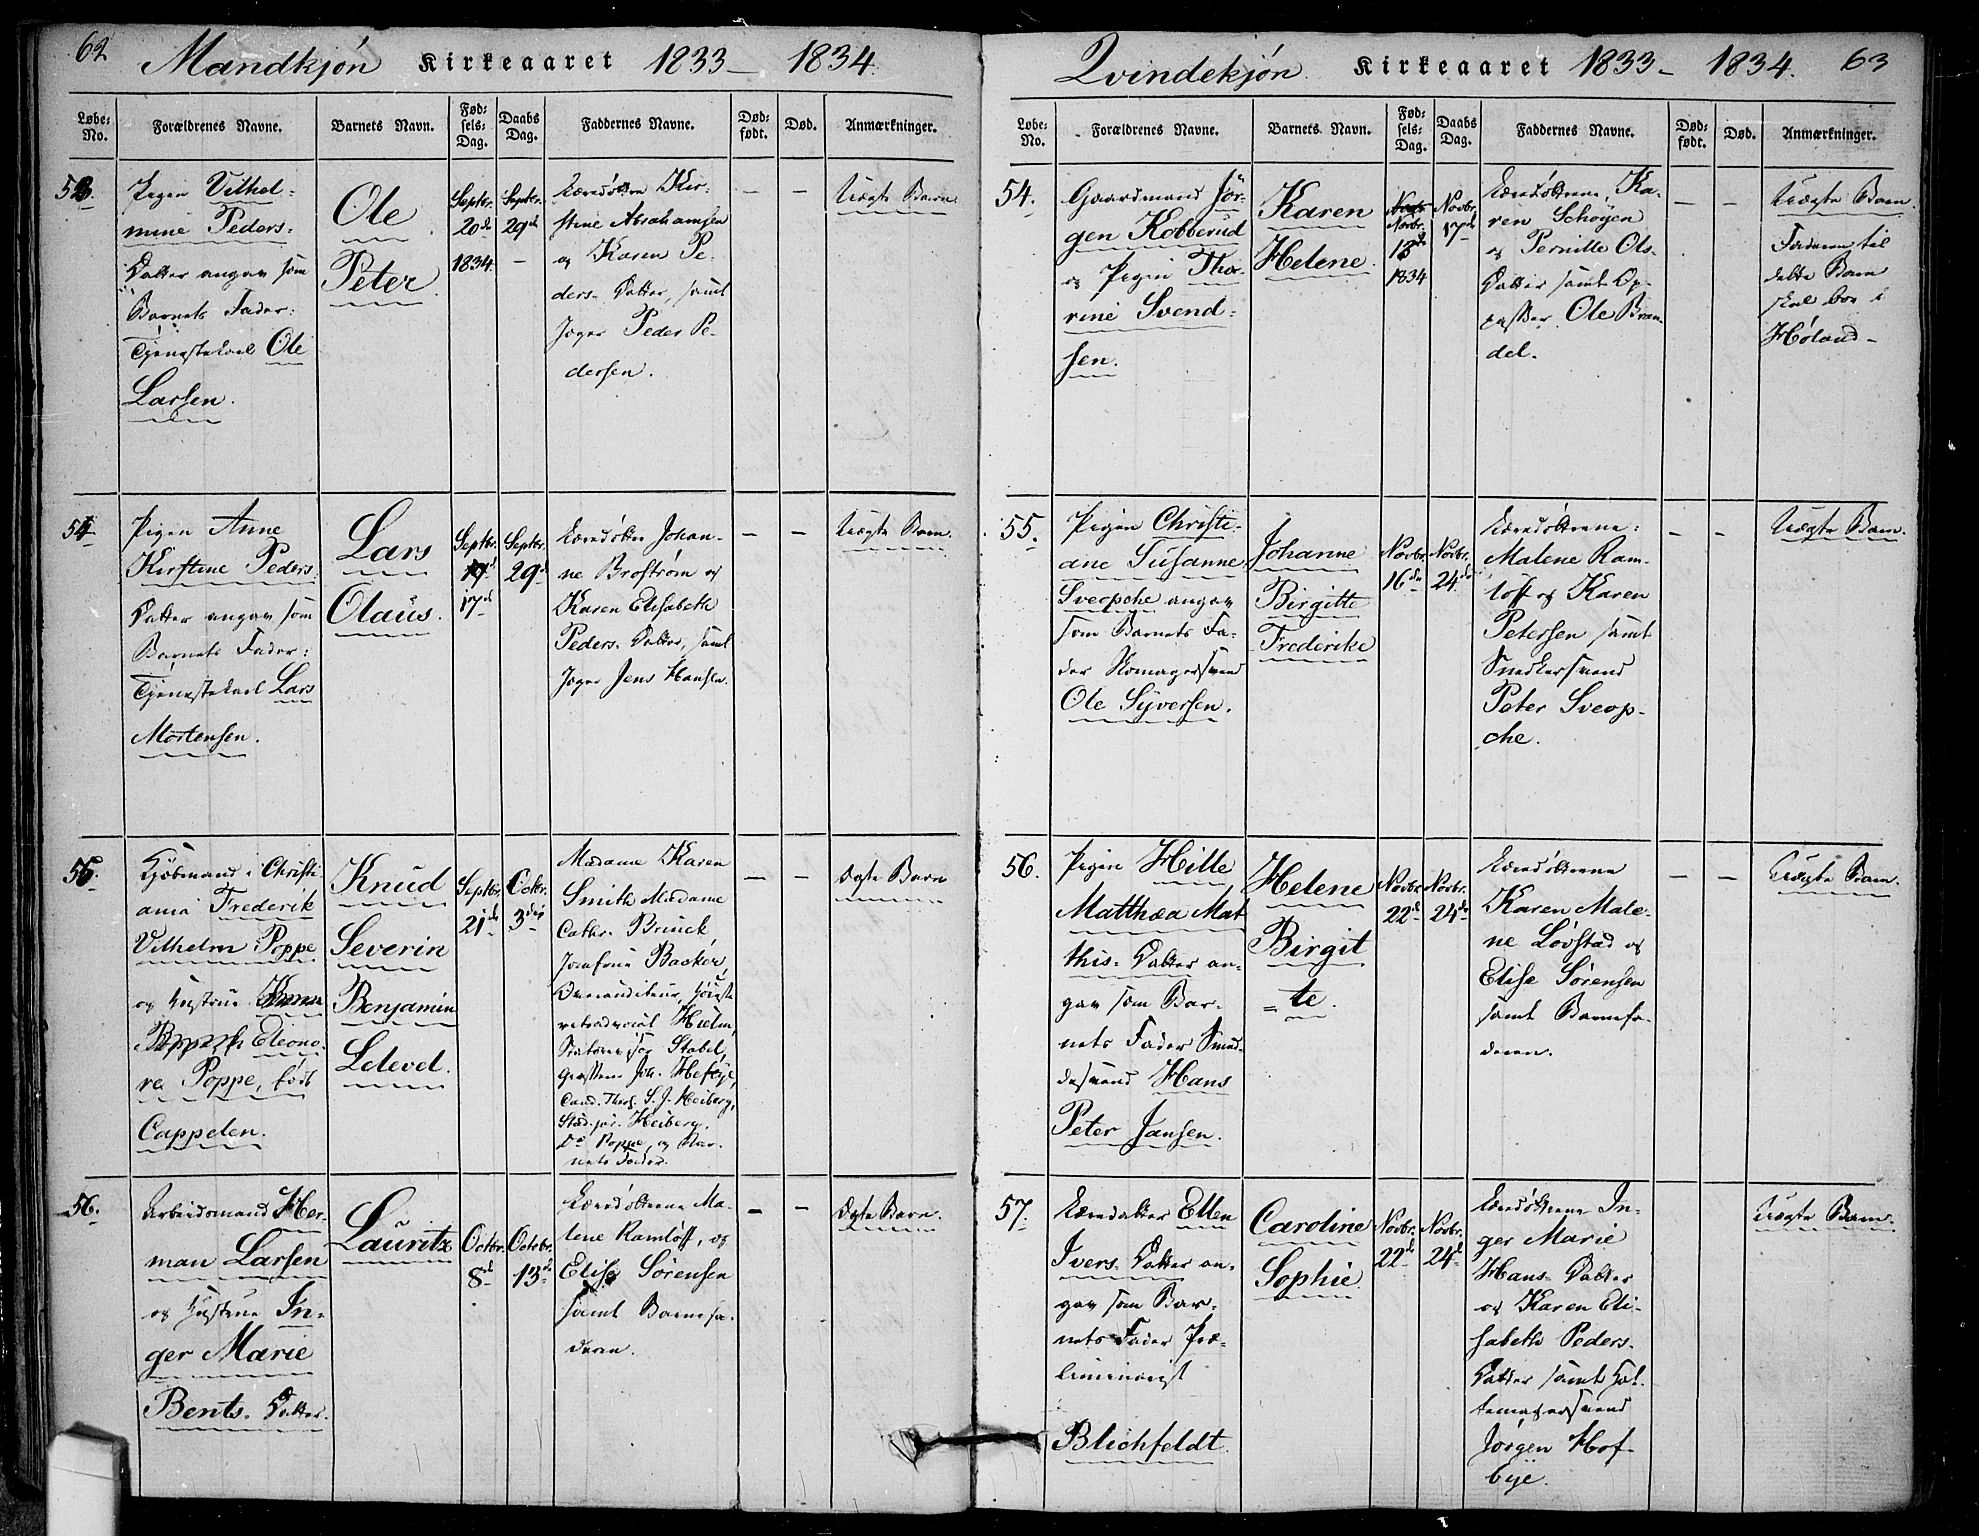 62 Mandkjøn Kirkeaaret 1833 – 1834.
Løbe-No. Forældrenes Navne. Barnets Navn. Fødsels-Dag. Daabs Dag. Faddernes Navne. Dødfødt. Død. Anmærkninger.
53.
Pigen Vilhel-
mine Peders-
Datter angav som
Barnets Fader:
Tjenestekarl Ole
Larsen.
Ole
Peter
Septbr.
20de
1834.
Septbr.
29de
Kir-
stine Abrahamsen
og Karen Pe-
ders-Datter, samt
Peder Pe-
dersen.
– –
Uægte Barn
54
Pigen Anne
Kirstine Peders-
Datter angav som
Barnets Fader:
Tjenestekarl Lars
Mortensen.
Lars
Olaus.
Septbr.
17de
Septbr.
29de
Johan-
ne Broström og
Karen Elisabeth
Peders-Datter, samt
Jens Hansen.
– –
Uægte Barn.
55.
Kjöbmand i Christi-
ania Frederik
Vilhelm Poppe
og Hustrue
Eleono-
re Poppe, født
Cappelen.
Knud
Severin
Benjamin
Lelevel.
Septbr.
21de
Octbr.
3die
Madame Karen
Smith Madame
Cathr. Brinck
Jomfrue Backer,
Hielm,
Stabel,
Joh. Heftye,
Cand. Theol. S. J. Heiberg,
Stud. jur. Heiberg.
Do Poppe, og Bar-
nets Fader.
– –
Ægte Barn
56.
Arbeidsmand Her-
man Larsen
og Hustrue In-
ger Marie
Bents-Datter.
Lauritz
Octbr.
8de
Octobr.
13de
Ma-
lene Ramløff, og
Elise Sörensen
samt Barnefa-
deren.
– –
Ægte Barn.
Qvindekjøn. Kirkeaaret 1833 – 1834. 63
Løbe-No. Forældrenes Navne. Barnets Navn. Fødsels-Dag. Daabs Dag. Faddernes Navne. Dødfødt. Død. Anmærkninger.
54.
Gaardmand Jör-
gen Kobberud
og Pigen Tho-
rine Svend-
sen.
Karen
Helene.
Novbr.
13de
1834
Novbr.
17de
Ka-
ren Schøyen
og Pernille Ols-
Datter samt Op-
passer Ole Bran-
del.
– –
Uægte Barn.
Faderen til
dette Barn
skal boe i
Høland –
55.
Pigen Christi-
ane Susanne
Sveopche angav
som Barnets Fa-
der Skomagersvend
Ole Syversen.
Johanne
Birgitte
Frederike
Novbr.
16de
Novbr.
24de
Malene Ram-
løff og Karen
Petersen samt
Snedkersvend
Peter Sveop-
che.
– –
Uægte Barn.
56.
Pigen Hille
Matthæa Mat-
this-Datter an-
gav som Bar-
nets Fader Sme-
desvend Hans
Peter Jansen.
Helene
Birgit
=te.
Novbr.
22de
Novbr.
24de
Karen Male-
ne Løvstad og
Elise Sørensen
samt Barnefa-
deren.
– –
Uægte Barn.
57.
Ellen
Ivers-Datter an-
gav som Bar-
nets Fader Præ-
liminairist
Blichfeldt.
Caroline
Sophie.
Novbr.
22de
Novbr.
24de
In-
ger Marie
Hans-Datter
og Karen Eli-
sabeth Peders-
Datter samt Hat-
temagersvend
Jørgen Hof-
bye.
– –
Uægte Barn.